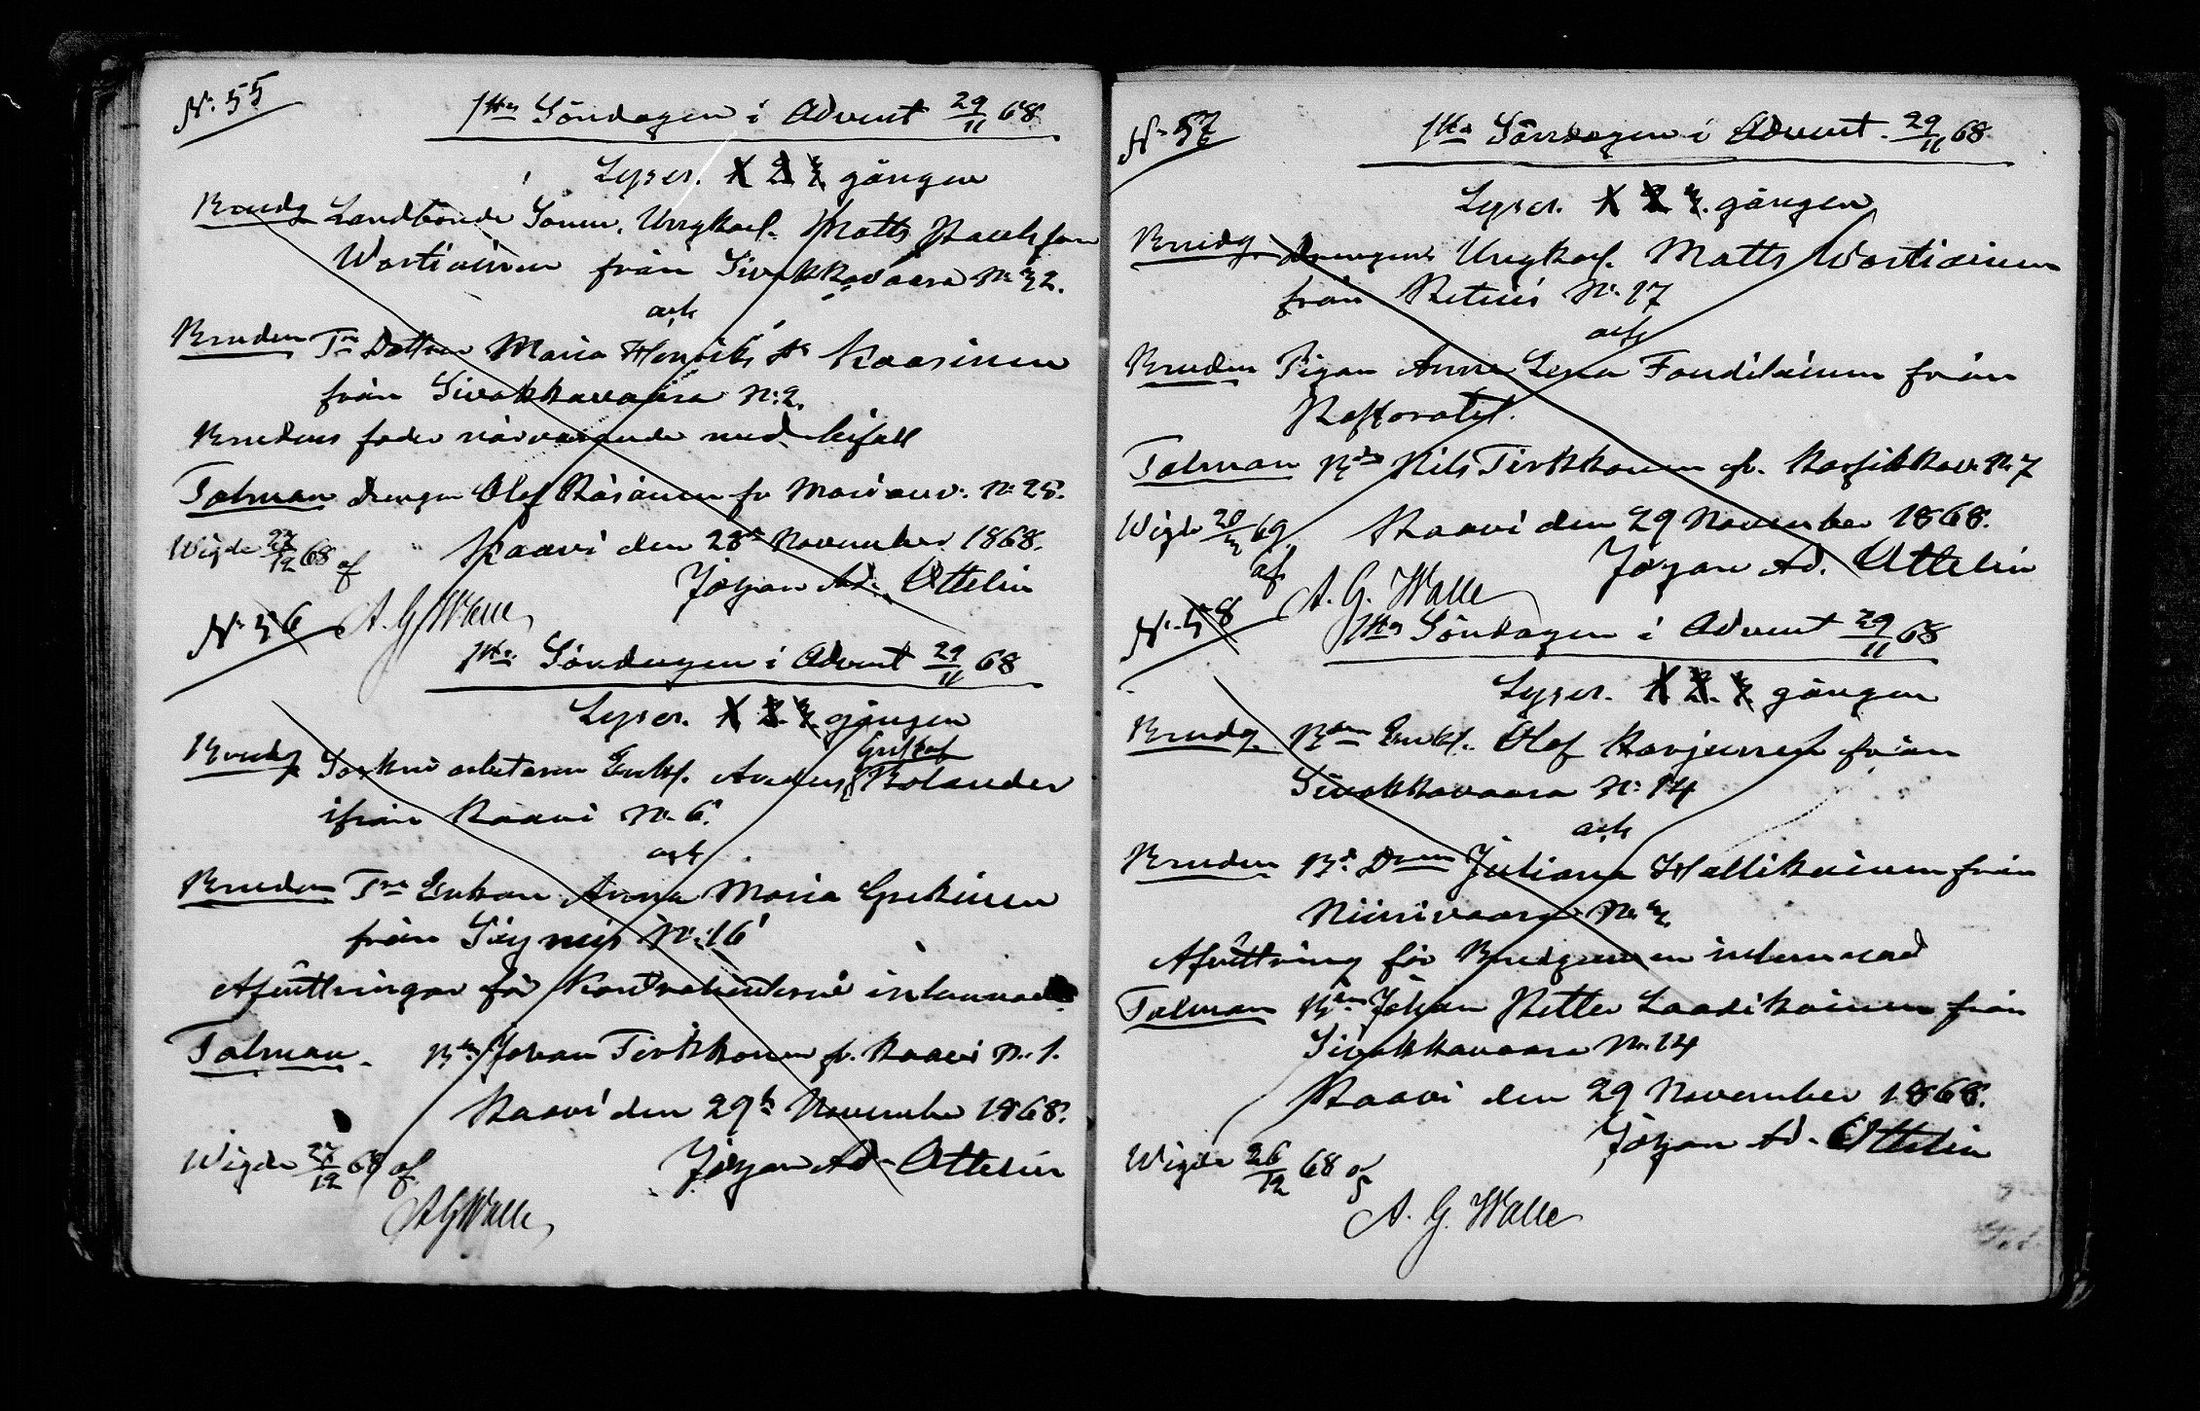 N: 55
1sta Söndagen i Advent 29/11 68.
Lyser. 1 2 3 gången
Brudg Landbonde Sonen, Ungkarl. Matts Paulsson
Wartiainen från Sivakkavaara N: 32.
och
Bruden Tr Dottern Maria Henriks dr Kaasinen
från Sivakkavaara N: 2.
Brudens fader närvarande med bifall
Talman Drengen Olof Räsänen fr N: 28.
Wigde 27/12 68 af
Kaavi den 28 November 1868.
Johan Ad. Ottelin
A. G. Walle
N: 56
1sta Söndagen i Advent 29/11 68
Lyser. 1 2 3 gången
Brudg Enkl. Anders Gustaf Bolander
ifrån Kaavi N: 6.
och
Bruden Enkan Anna Maria
från N: 16
Afvittringar för Kontrahenterne inlemnade
Talman. Bn Johan Tirkkonen fr. Kaavi N: 1.
Kaavi den 29 November 1868.
Johan Ad. Ottelin
Wigde 27/12 68 af
A G Walle
N: 57
1sta Söndagen i Advent. 29/11 68
Lyser. 1 2 3. gången
Brudg. Drengen Ungkarl. Matts Wartiainen
från N: 17
och
Bruden Pigan Anna Lena från
Pastoratet.
Talman Nils Tirkkonen fr. N: 7
Wigde 69 af
Kaavi den 29 November 1868.
Johan Ad. Ottelin
A. G. Walle
N: 58
1sta Söndagen i Advent 29/11 68
Lyser. 1 2. 3 gången
Brudg. Bden Enkl. Olof Karjunen från
Sivakkavaara N: 14
och
Bruden Bd. Dren Juliana Hallikainen från
Niinivaara N: 3
Afvittring för Brudgummen inlemnad
Talman Bden Johan Petter Laadikainen från
Sivakkavaara N: 14
Kaavi den 29 November 1868.
Johan Ad. Ottelin
Wigde 26/12 68 af
A. G. Walle